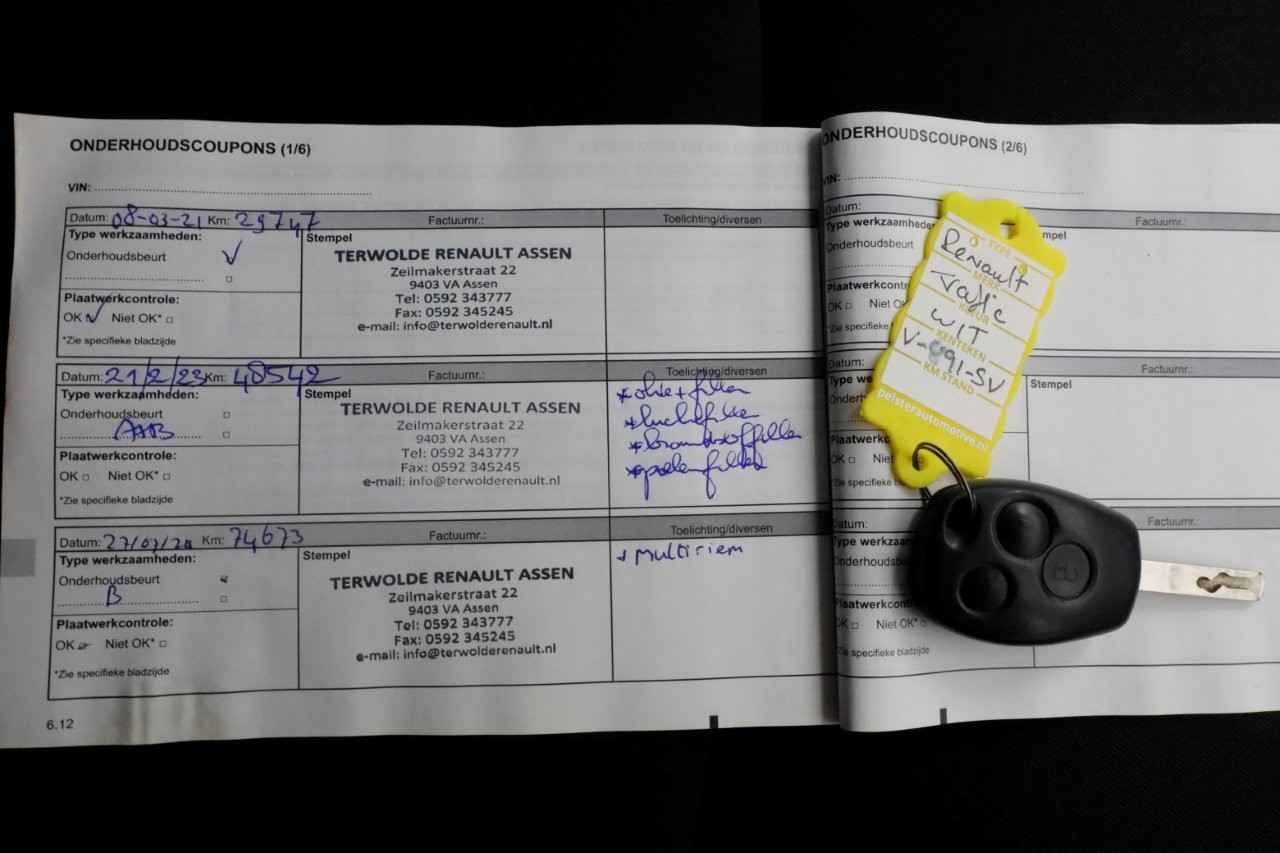 ONDERHOUDSCOUPONS (1/6)
VIN:
Datum: 08-03-21 Km: 29747 Factuurnr.: Toelichting/diversen
Type werkzaamheden: Stempel
Onderhoudsbeurt
Plaatwerkcontrole:
OK Niet OK*
*Zie specifieke bladzijde
TERWOLDE RENAULT ASSEN
Zeilmakerstraat 22
9403 VA Assen
Tel: 0592 343777
Fax: 0592 345245
e-mail: info@terwolderenault.nl
Datum: 21/2/23 Km: 48542 Factuurnr.: Toelichting/diversen
Type werkzaamheden: Stempel
Onderhoudsbeurt
Plaatwerkcontrole:
OK Niet OK*
*Zie specifieke bladzijde
TERWOLDE RENAULT ASSEN
Zeilmakerstraat 22
9403 VA Assen
Tel: 0592 343777
Fax: 0592 345245
e-mail: info@terwolderenault.nl
* olie + filter
* luchtfilter
* brandstoffilter
Datum: Km: 74673 Factuurnr.: Toelichting/diversen
Type werkzaamheden: Stempel
Onderhoudsbeurt
B
Plaatwerkcontrole:
OK Niet OK*
*Zie specifieke bladzijde
TERWOLDE RENAULT ASSEN
Zeilmakerstraat 22
9403 VA Assen
Tel: 0592 343777
Fax: 0592 345245
e-mail: info@terwolderenault.nl
+ multiriem
6.12
ONDERHOUDSCOUPONS (2/6)
VIN:
Datum: Factuurnr.:
Type werkzaamhede
Onderhoudsbeurt
Plaatwerkcontr
OK Niet OK
*Zie specifieke
Datum:
Type we
Stempel
Plaatwerk
OK Nie
*Zie specifieke b
Datum: Factuurnr.:
Type werkzaa
Onderhoudsbe
Plaatwerkcontro
OK Niet OK*
*Zie specifieke bladzijde
TYPE
Renault
MERK
Trafic
KLEUR
WIT
KENTEKEN
V-891-SV
KM STAND
pelsterautomotive.nl